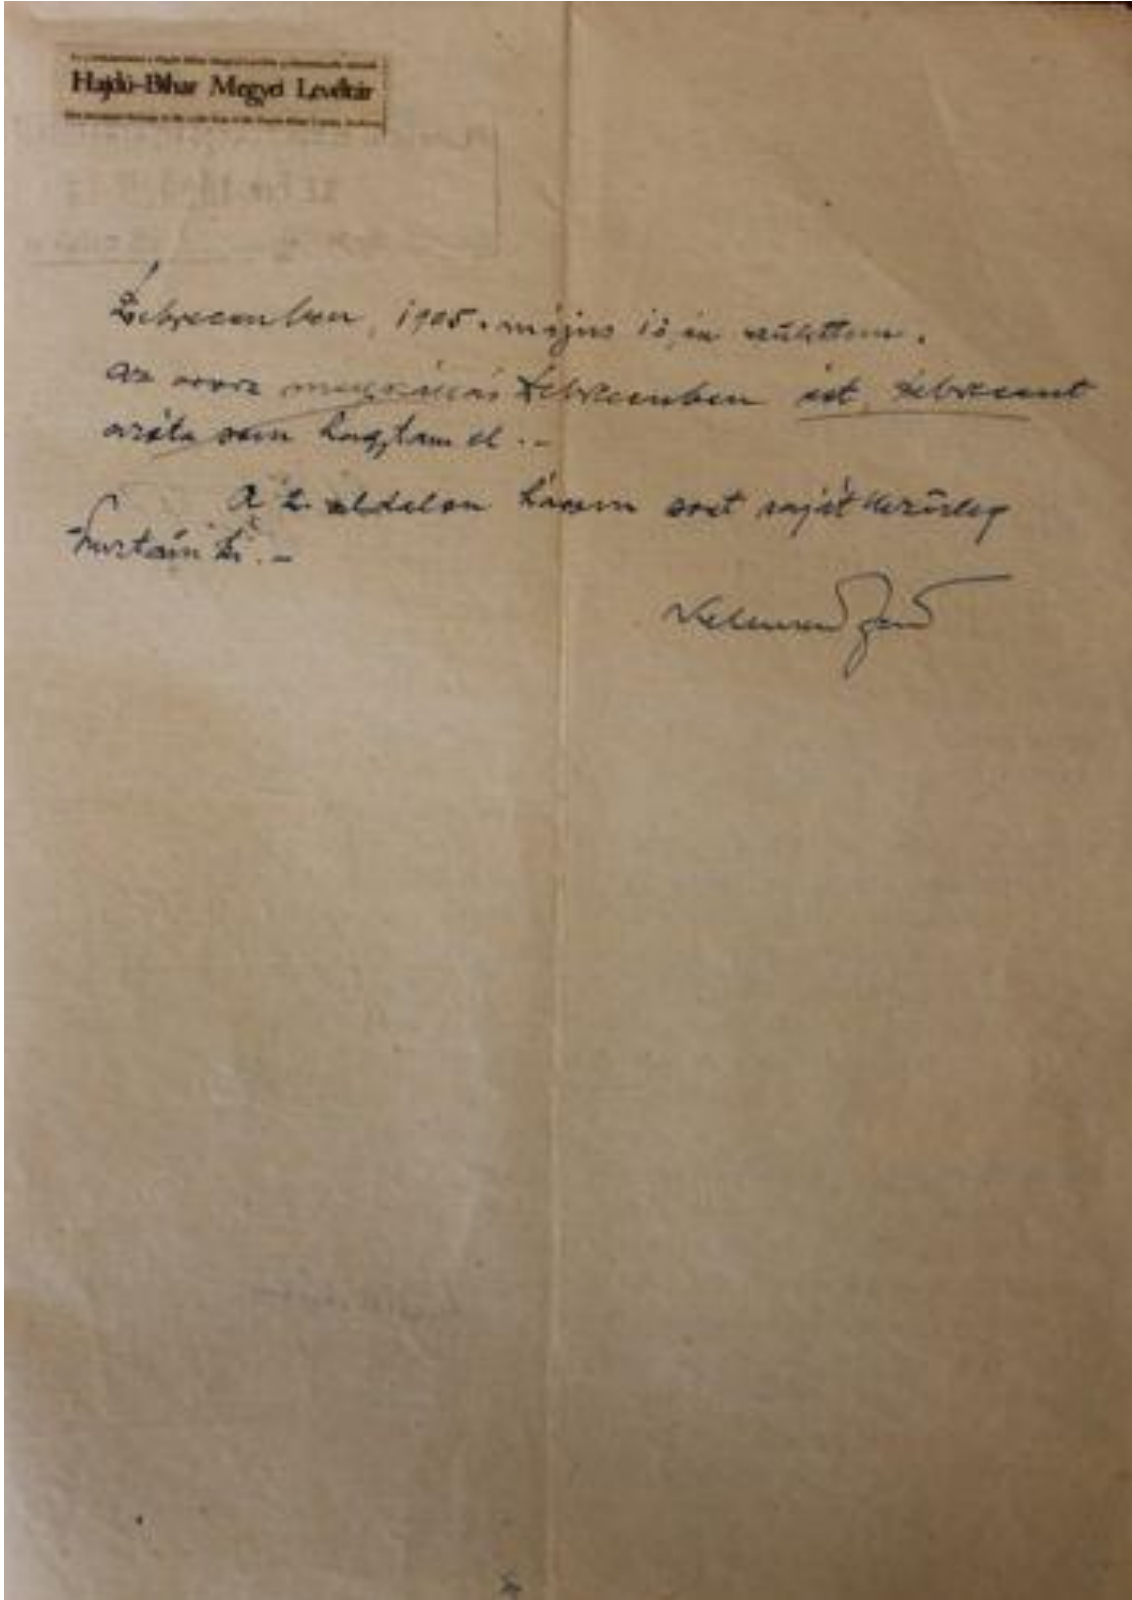 Hajdú-Bihar Megyei Levéltár
Debrecenben, 1905. május 10,én születtem.
Az orosz megszállás Debrecenben ért, Debrecent
azóta sem hagytam el. –
A 2. oldalon három sort saját kezűleg
húztam ki. –